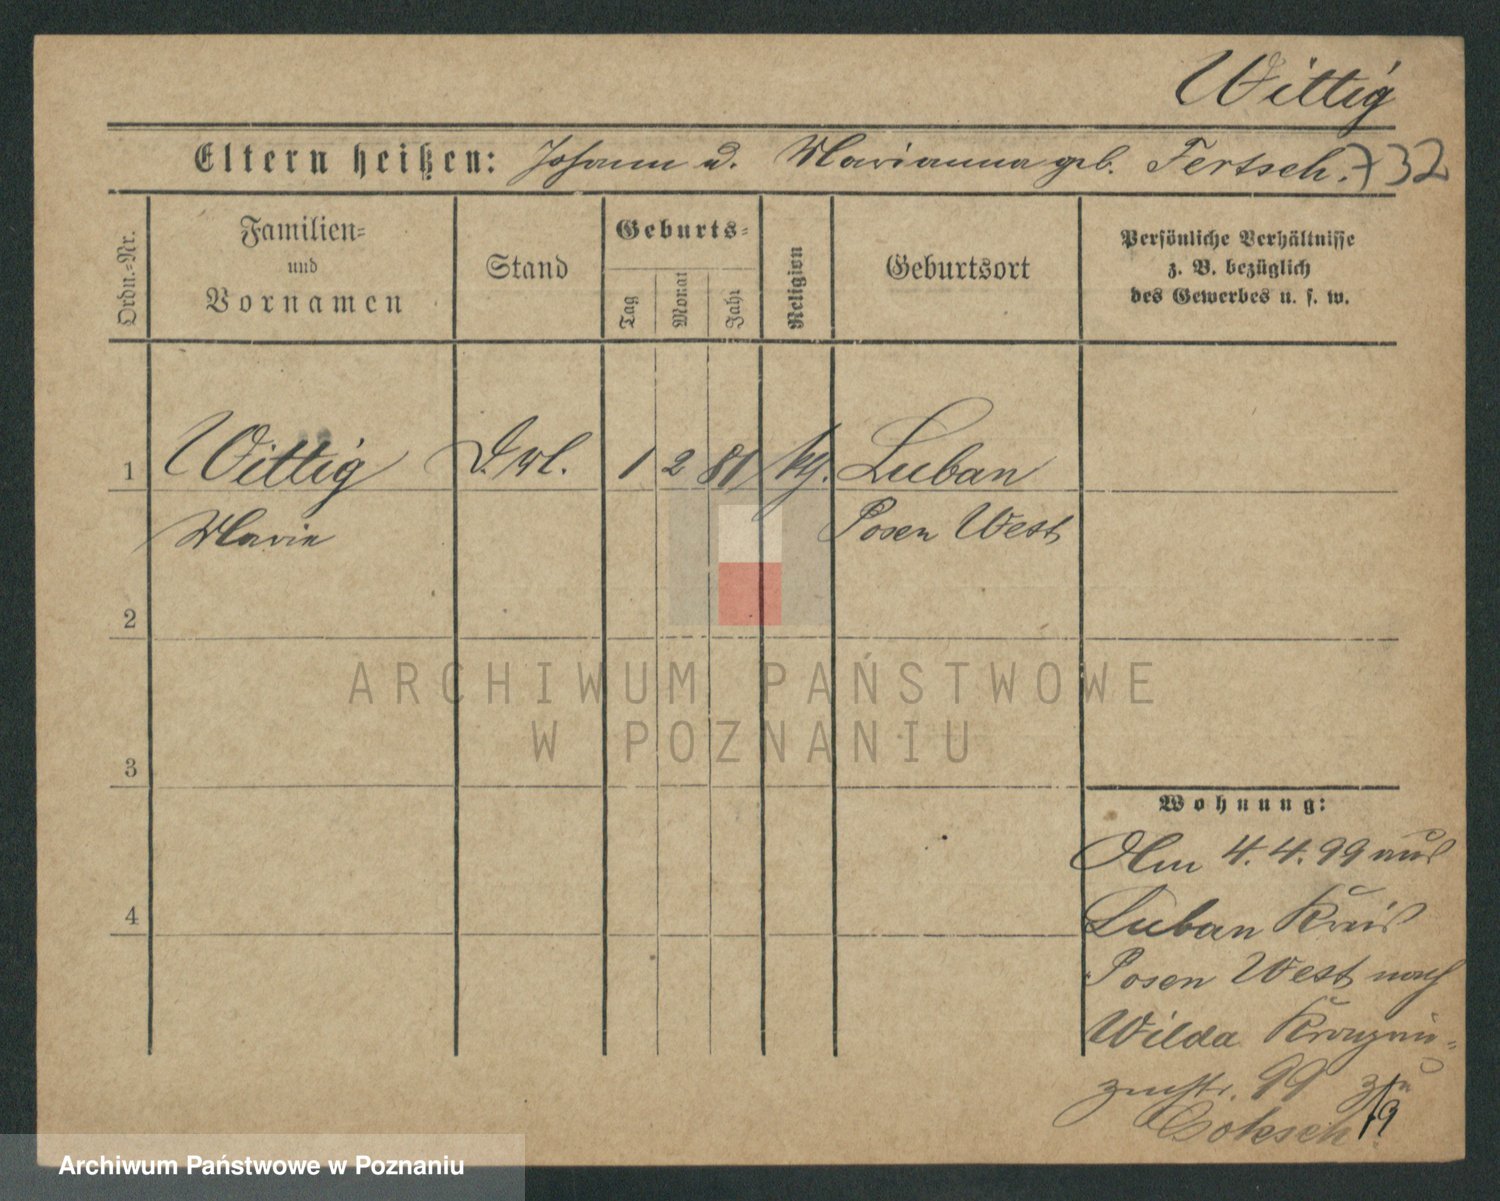 Wittig
Eltern heißen: Johann u. Marianna geb. Tertsch. 732
Ordn.=Nr.
Familien=
und
Vornamen
Stand
Geburts=
Tag
Monat
Jahr
Religion
Geburtsort
Persönliche Verhältnisse
z. B. bezüglich
des Gewerbes u. s. w.
1 Wittig 1 2 81 Luban
Marie Posen West
2
3
4
ARCHIWUM PAŃSTWOWE
W POZNANIU
Wohnung:
Am 4.4.99 aus
Luban Kreis
Posen West nach
Wilda Kronprin=
zenstr. 99
Archiwum Państwowe w Poznaniu